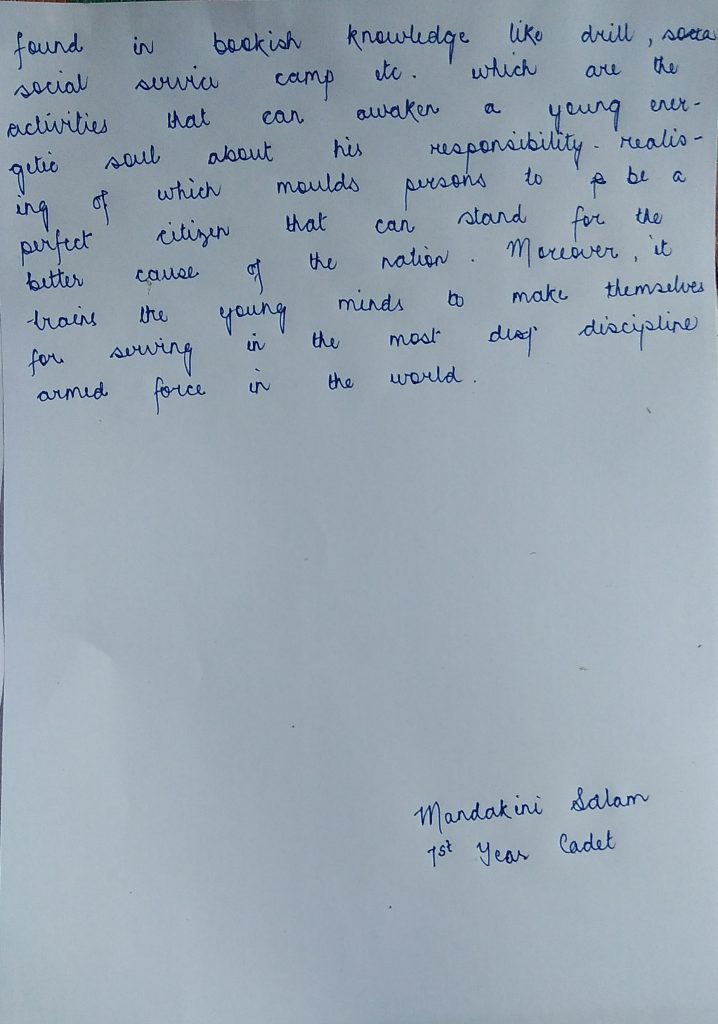 found in bookish knowledge like drill, socia
social service camp etc. which are the
activities that can awaken a young ener-
getic soul about his responsibility. realis-
ing of which moulds persons to p be a
perfect citizen that can stand for the
better cause of the nation. Moreover, it
trains the young minds to make themselves
for serving in the most discipline
armed force in the world.
Mandakini Salam
1st Year Cadet